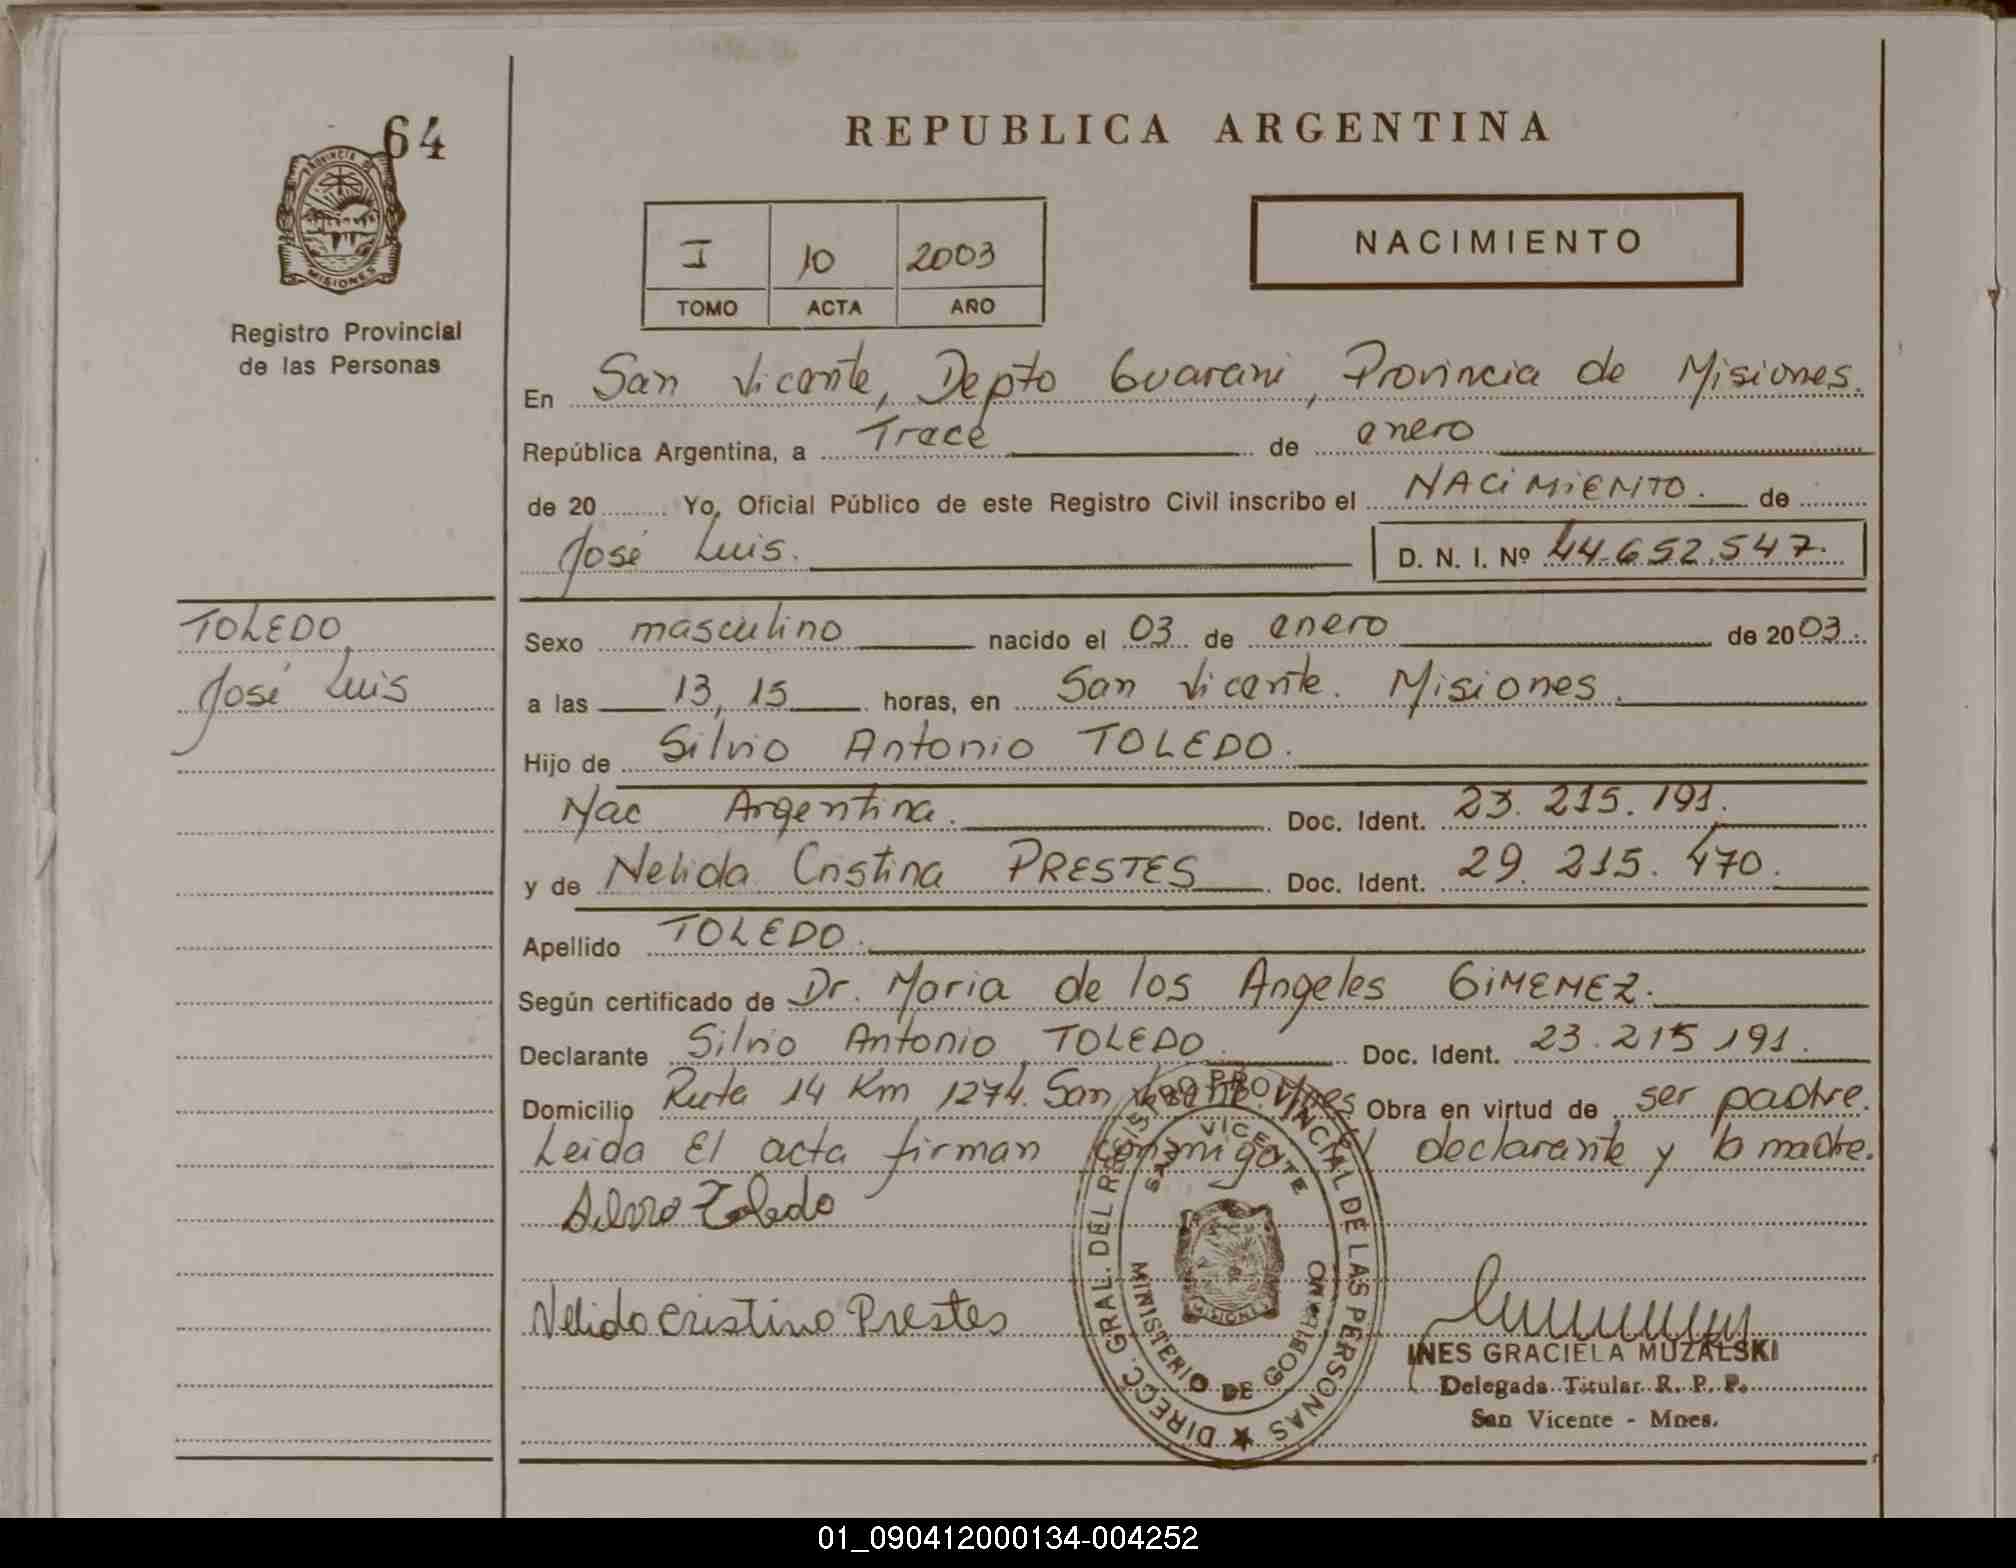 64
PROVINCIA DE
MISIONES
Registro Provincial
de las Personas
TOLEDO
José Luis
REPUBLICA ARGENTINA
I 10 2003
TOMO ACTA AÑO
NACIMIENTO
En San Vicente, Depto Guarani, Provincia de Misiones.
República Argentina, a Trece de enero
de 20 Yo, Oficial Público de este Registro Civil inscribo el NACIMIENTO. de
José Luis. D. N. I. Nº 44.652.547.
Sexo masculino nacido el 03 de enero de 2003.
a las 13,15 horas, en San Vicente. Misiones.
Hijo de Silvio Antonio TOLEDO.
Nac Argentina. Doc. Ident. 23.215.191.
y de Nelida Cristina PRESTES Doc. Ident. 29.215.470.
Apellido TOLEDO.
Según certificado de Dr. Maria de los Angeles GIMENEZ.
Declarante Silvio Antonio TOLEDO. Doc. Ident. 23.215.191.
Domicilio Ruta 14 Km 1274. San Vicente. Mnes Obra en virtud de ser padre.
Leida El acta firman conmigo El declarante y la madre.
Silvio Toledo
Nelida Cristina Prestes
DIRECC. GRAL. DEL REGISTRO PROVINCIAL DE LAS PERSONAS
SAN VICENTE
MISIONES
MINISTERIO DE GOBIERNO
INES GRACIELA MUZALSKI
Delegada Titular R. P. P.
San Vicente - Mnes.
01_090412000134-004252